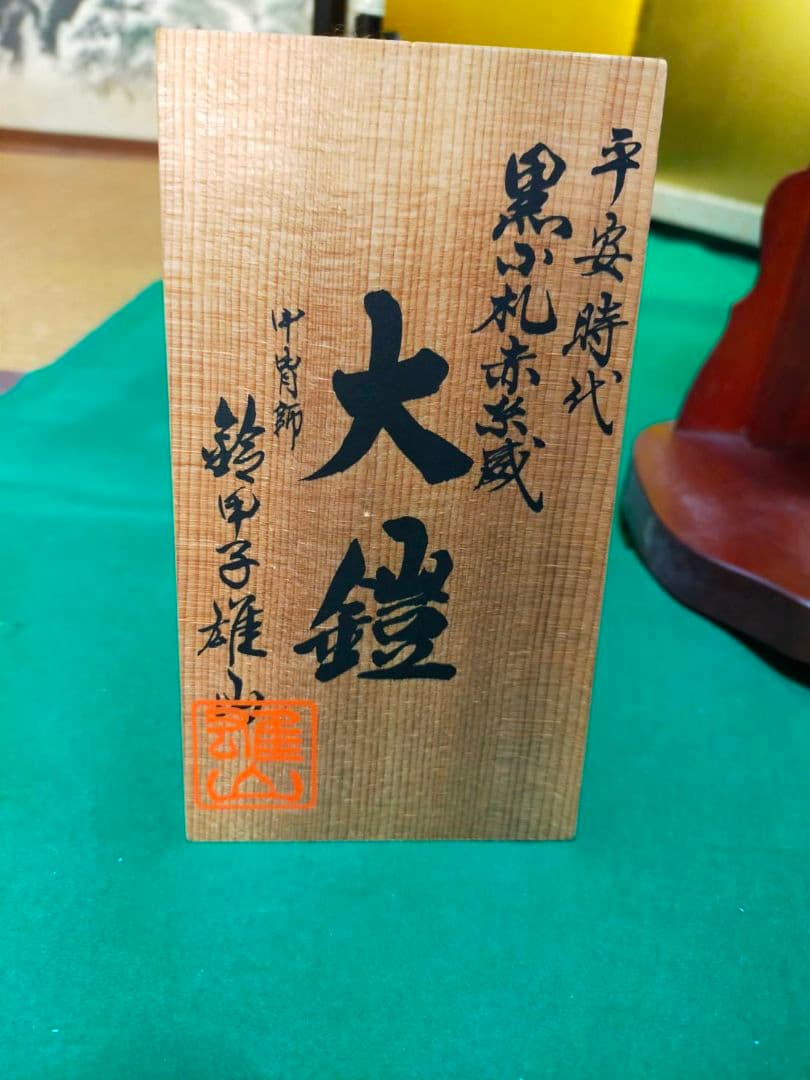 平安時代
黒小札赤糸威
大鎧
甲冑師
鈴甲子雄山
雄山